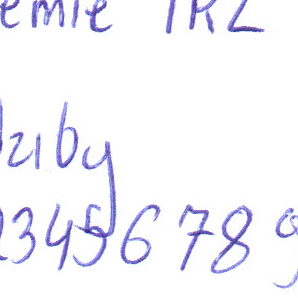 emie IRL
ziby
2345 6 78 9